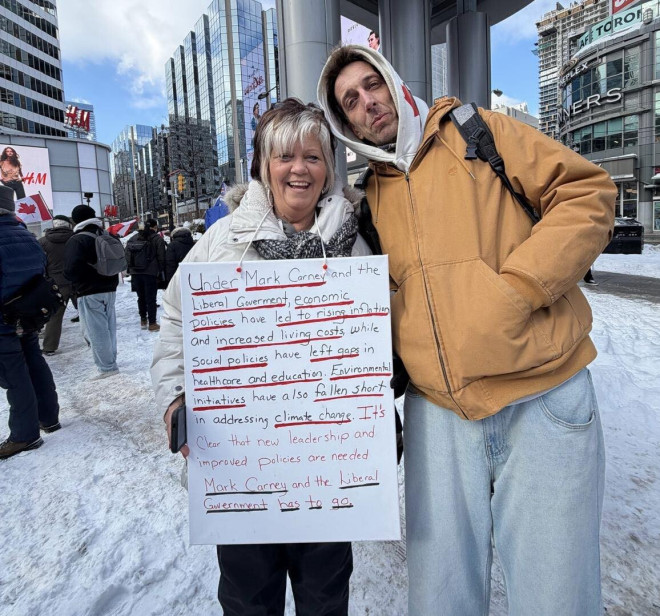 Under Mark Carney and the
Liberal Goverment, economic
policies have led to rising inflation
and increased living costs, while
Social policies have left gaps in
healthcare and education. Environmental
initiatives have also fallen short
in addressing climate change. It's
Clear that new leadership and
improved policies are needed
Mark Carney and the Liberal
Government has to go.
H&M
H&M
TORONTO